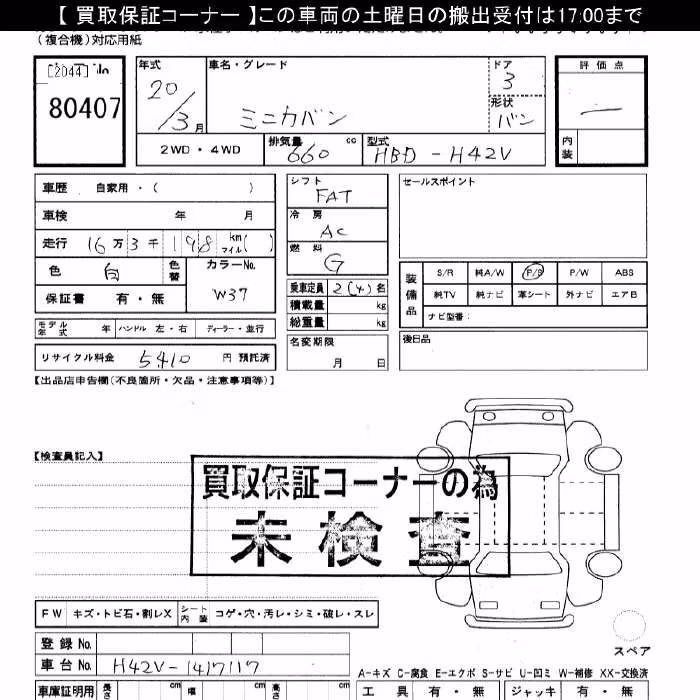 【 買取保証コーナー 】この車両の土曜日の搬出受付は17:00まで
(複合機)対応用紙
[2044] No
80407
年式 車名・グレード ドア 評価点
20/3月 ミニカバン 3
形状 バン
2WD・4WD 排気量 660 cc 型式 HBD-H42V
内装
車歴 自家用・( )
シフト FAT
セールスポイント
車検 年 月
冷房 AC
走行 16万3千198 km マイル( )
燃料 G
色 白 色替 カラーNo. W37
乗車定員 2(4)名
積載量 kg
総重量 kg
保証書 有・無
装備品 S/R 純A/W P/S P/W ABS
純TV 純ナビ 革シート 外ナビ エアB
ナビ型番:
モデル年式 年 ハンドル 左・右 ディーラー・並行
名変期限 月 日
後日品
リサイクル料金 5410 円 預託済
【出品店申告欄(不良箇所・欠品・注意事項等)】
【検査員記入】
買取保証コーナーの為
未検査
FW キズ・トビ石・割レX シート内装 コゲ・穴・汚レ・シミ・破レ・スレ
スペア
登録 No.
車台 No. H42V-1417117
A-キズ C-腐食 E-エクボ S-サビ U-凹ミ W-補修 XX-交換済
車庫証明用 長さ cm 幅 cm 高さ cm
工具 有・無 ジャッキ 有・無